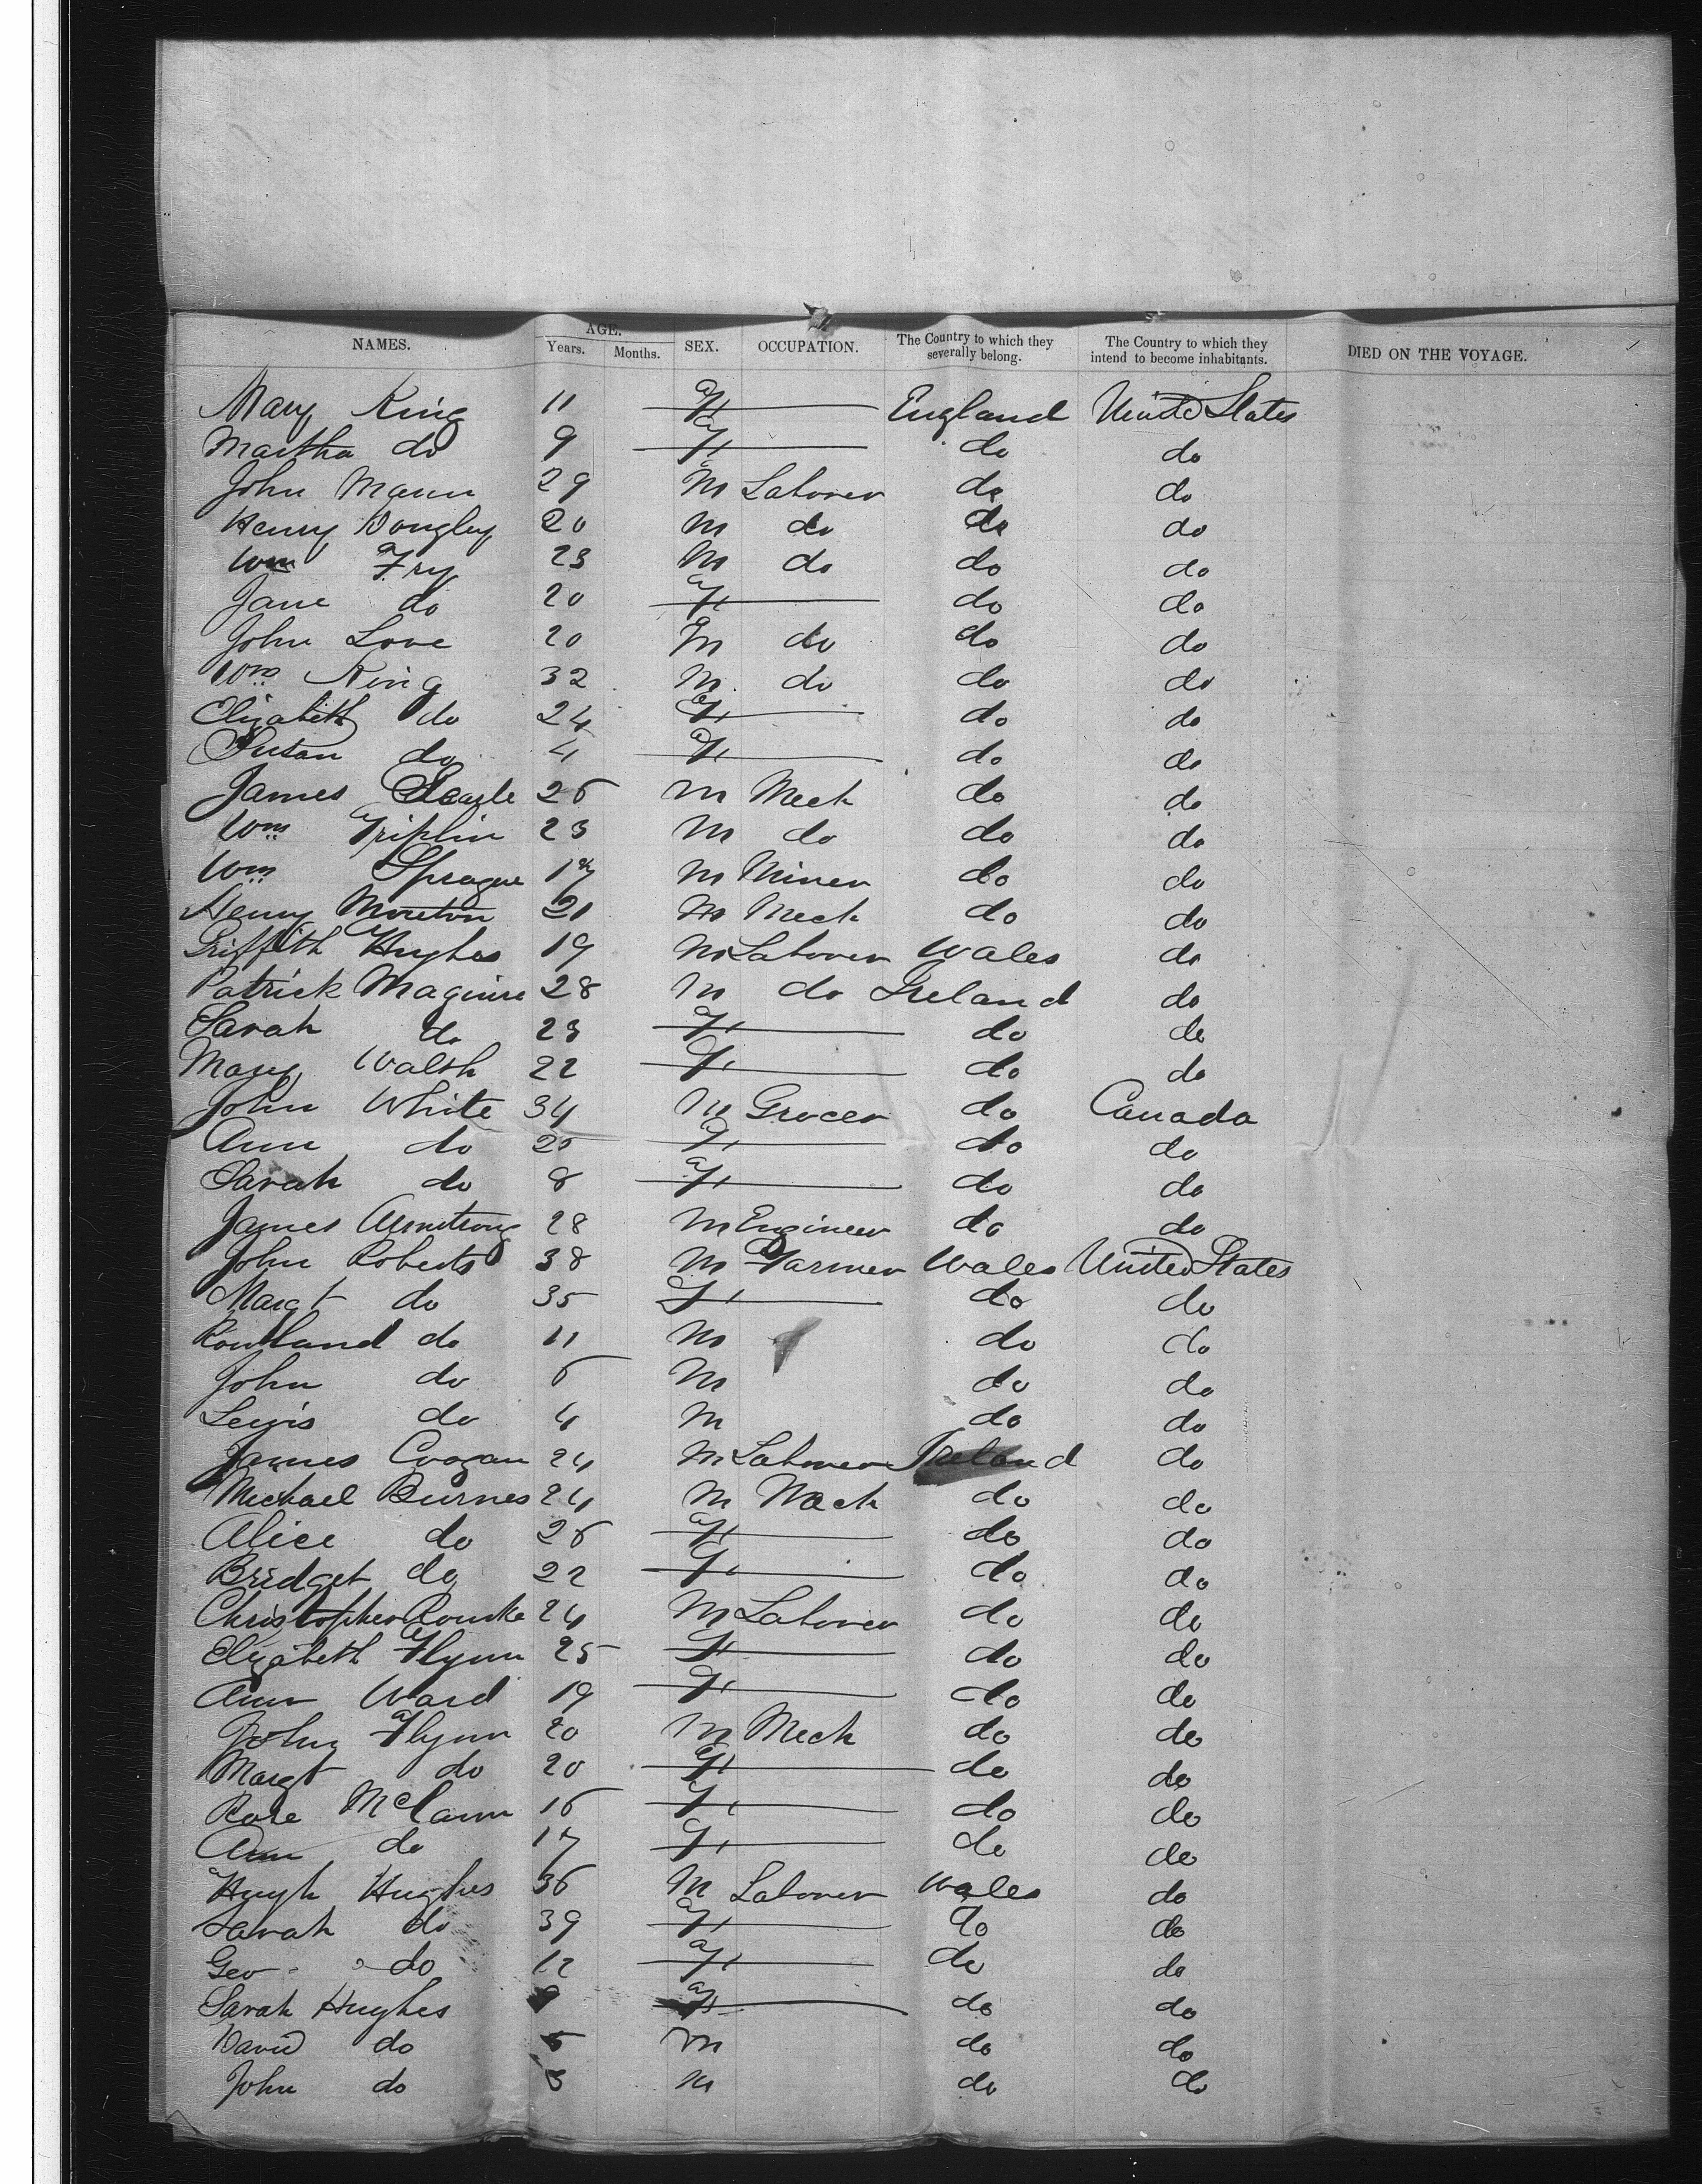 NAMES. AGE. Years. Months. SEX. OCCUPATION. The Country to which they severally belong. The Country to which they intend to become inhabitants. DIED ON THE VOYAGE.
Mary King 11 F. England United States
Martha do 9 F. do do
John Mann 29 M Laborer do do
Henry 20 M do do do
Wm Fry 23 M do do do
Jane do 20 F. do do
John Love 20 M do do do
Wm King 32 M do do do
Elizabeth do 24 F. do do
Susan do 4 F. do do
James Searle 26 M Mech do do
Wm Triplin 23 M do do do
Wm Sprague 17 M Miner do do
Henry Moreton 21 M Mech do do
Griffith Hughes 19 M Laborer Wales do
Patrick Maguire 28 M do Ireland do
Sarah do 23 F. do do
Mary Walsh 22 F. do do
John White 34 M Grocer do Canada
Ann do 25 F. do do
Sarah do 8 F. do do
James Armstrong 28 M Engineer do do
John Roberts 38 M Farmer Wales United States
Margt do 35 F. do do
Rowland do 11 M do do
John do 6 M do do
Lewis do 4 M do do
James Coogan 24 M Laborer Ireland do
Michael Burnes 24 M Mech do do
Alice do 26 F. do do
Bridget do 22 F. do do
Christopher Rourke 24 M Laborer do do
Elizabeth Flynn 25 F. do do
Ann Ward 19 F. do do
John Flynn 20 M Mech do do
Margt do 20 F. do do
Rose McCann 16 F. do do
Ann do 17 F. do do
Hugh Hughes 36 M Laborer Wales do
Sarah do 39 F. do do
Geo do 12 F. do do
Sarah Hughes F. do do
David do 5 M do do
John do 3 M do do